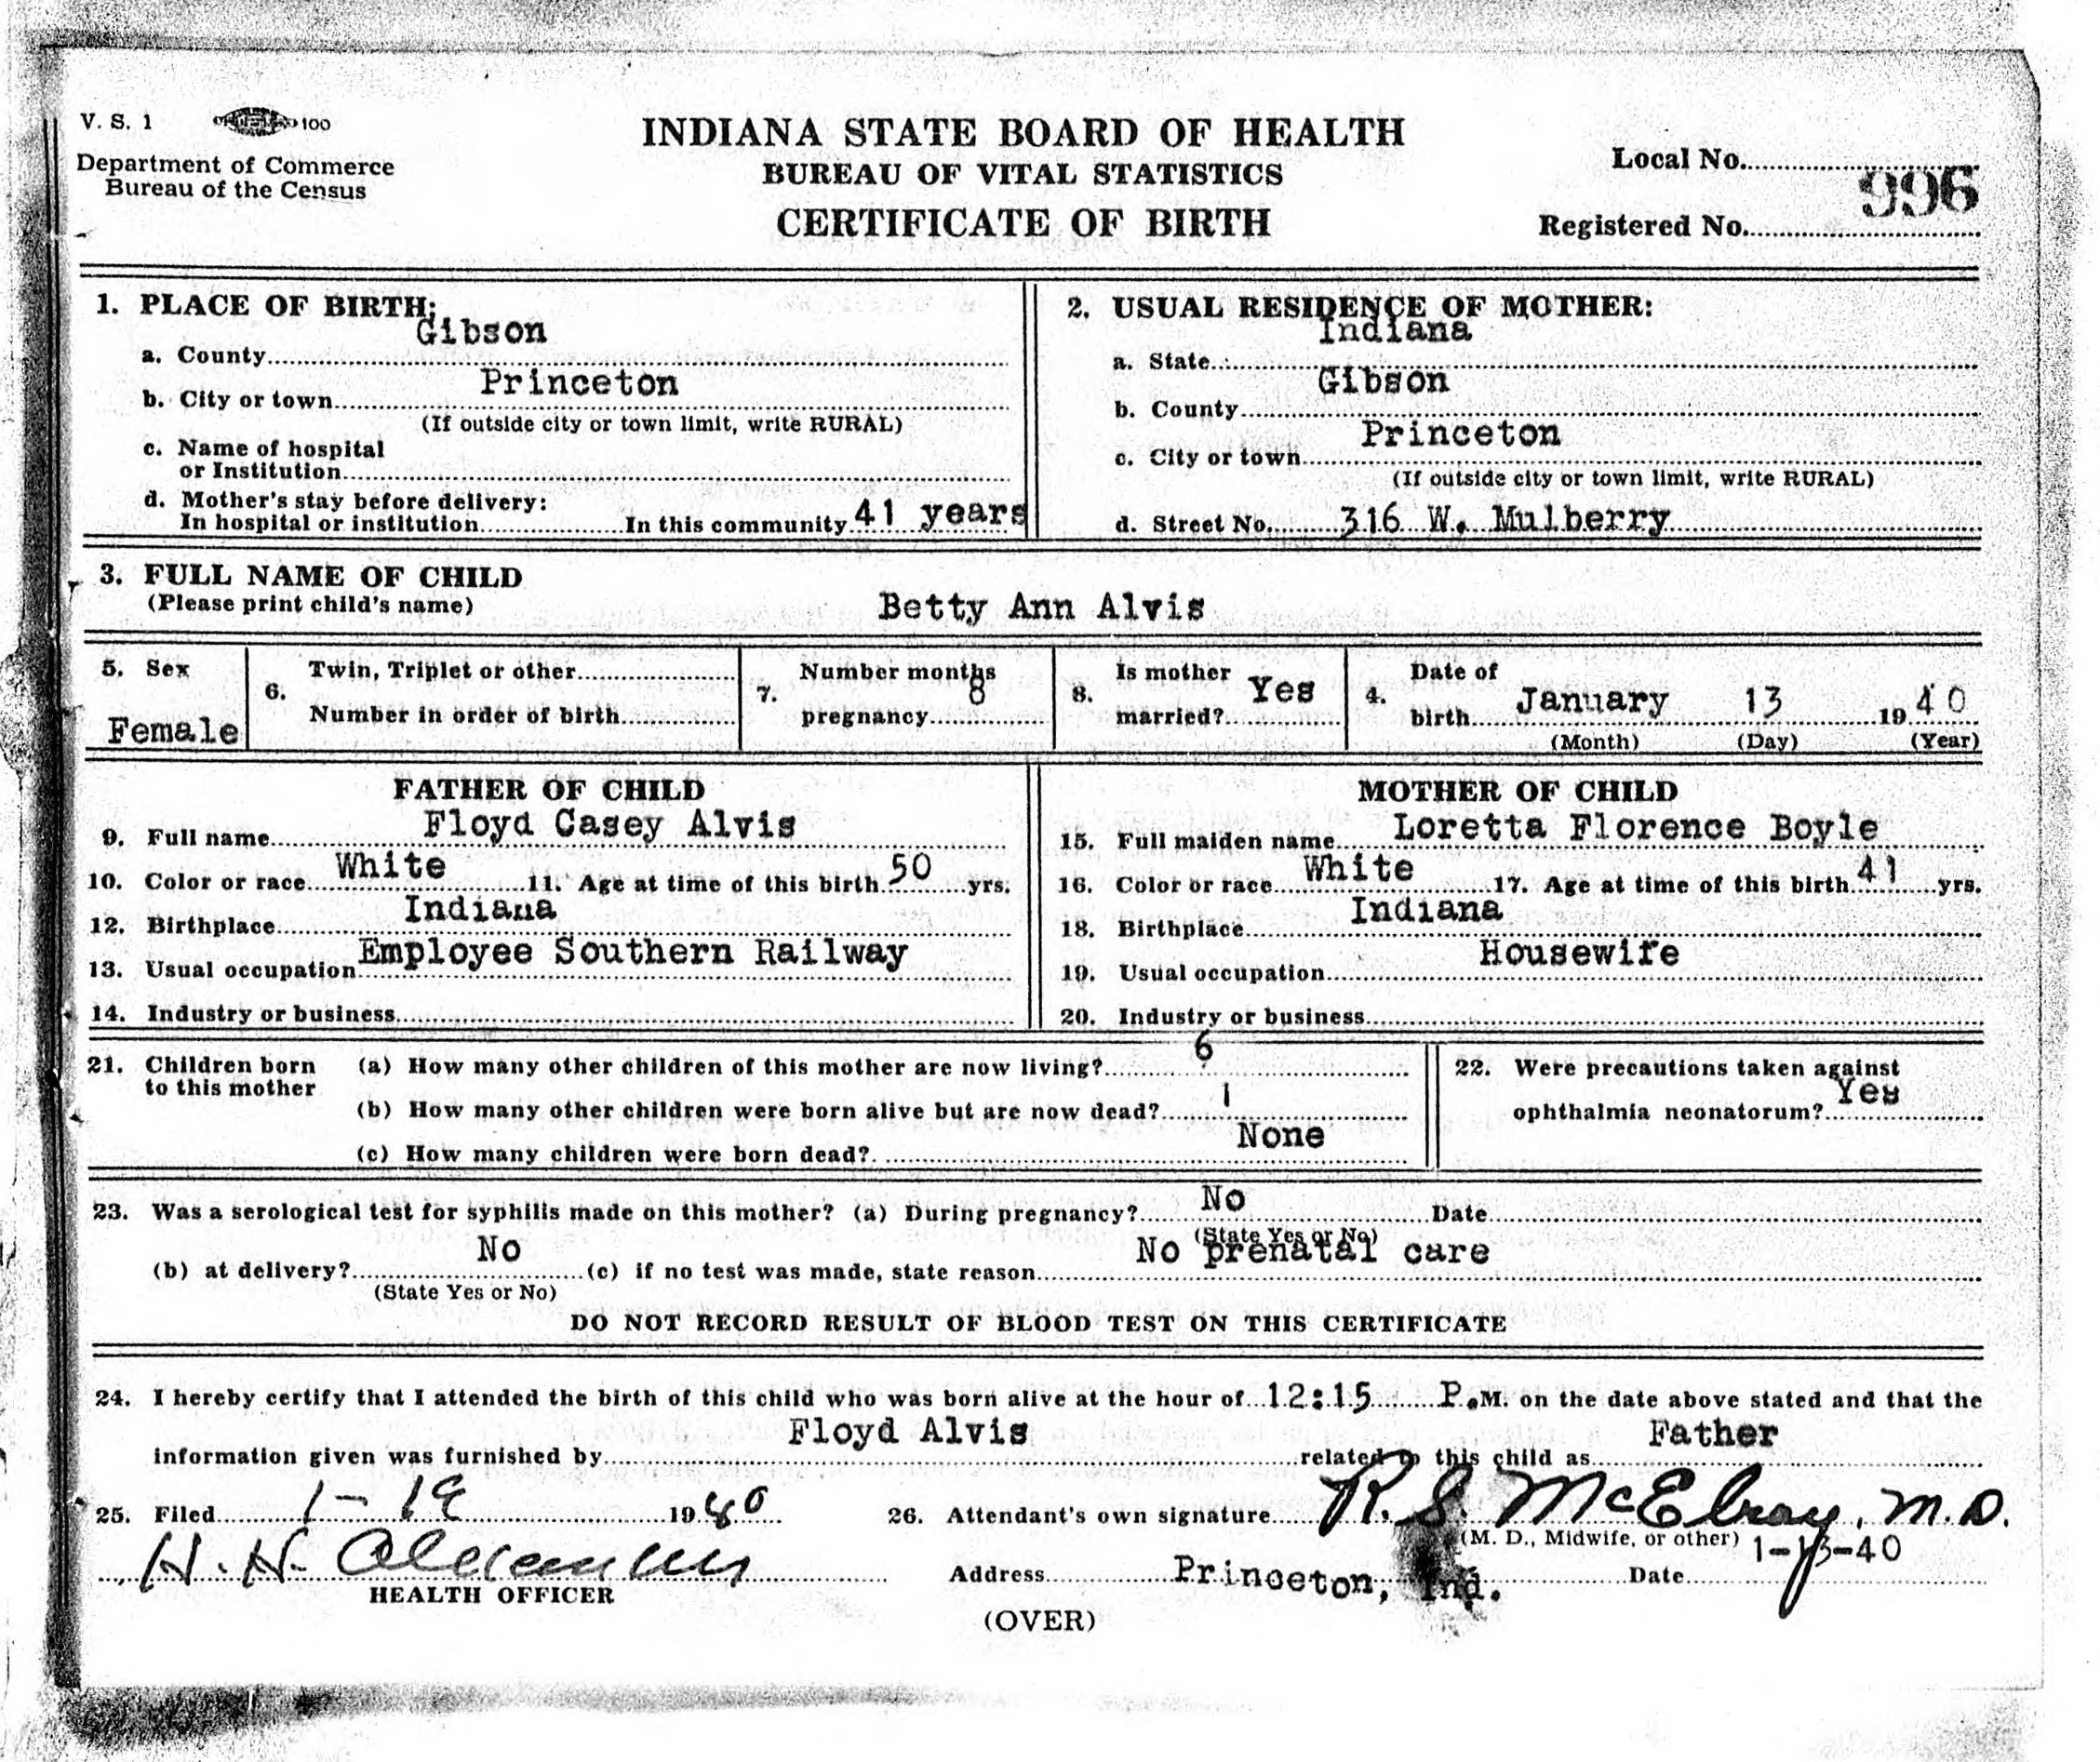 V. S. 1 100
Department of Commerce
Bureau of the Census
INDIANA STATE BOARD OF HEALTH
BUREAU OF VITAL STATISTICS
CERTIFICATE OF BIRTH
Local No.
996
Registered No.
1. PLACE OF BIRTH:
a. County Gibson
b. City or town Princeton
(If outside city or town limit, write RURAL)
c. Name of hospital
or Institution
d. Mother's stay before delivery:
In hospital or institution In this community 41 years
2. USUAL RESIDENCE OF MOTHER:
a. State Indiana
b. County Gibson
c. City or town Princeton
(If outside city or town limit, write RURAL)
d. Street No. 316 W. Mulberry
3. FULL NAME OF CHILD
(Please print child's name) Betty Ann Alvis
5. Sex
Female
6. Twin, Triplet or other
Number in order of birth
7. Number months
pregnancy 8
8. Is mother
married? Yes
4. Date of
birth January 13 1940
(Month) (Day) (Year)
FATHER OF CHILD
9. Full name Floyd Casey Alvis
10. Color or race White 11. Age at time of this birth 50 yrs.
12. Birthplace Indiana
13. Usual occupation Employee Southern Railway
14. Industry or business
MOTHER OF CHILD
15. Full maiden name Loretta Florence Boyle
16. Color or race White 17. Age at time of this birth 41 yrs.
18. Birthplace Indiana
19. Usual occupation Housewife
20. Industry or business
21. Children born
to this mother
(a) How many other children of this mother are now living? 6
(b) How many other children were born alive but are now dead? 1
(c) How many children were born dead? None
22. Were precautions taken against
ophthalmia neonatorum? Yes
23. Was a serological test for syphilis made on this mother? (a) During pregnancy? No Date
(State Yes or No)
(b) at delivery? No (c) if no test was made, state reason No prenatal care
(State Yes or No)
DO NOT RECORD RESULT OF BLOOD TEST ON THIS CERTIFICATE
24. I hereby certify that I attended the birth of this child who was born alive at the hour of 12:15 P.M. on the date above stated and that the
information given was furnished by Floyd Alvis related to this child as Father
25. Filed 1-19 1940
26. Attendant's own signature R. S. McElroy, M.D.
(M. D., Midwife, or other)
H. H.
HEALTH OFFICER
Address Princeton, Ind. Date 1-13-40
(OVER)